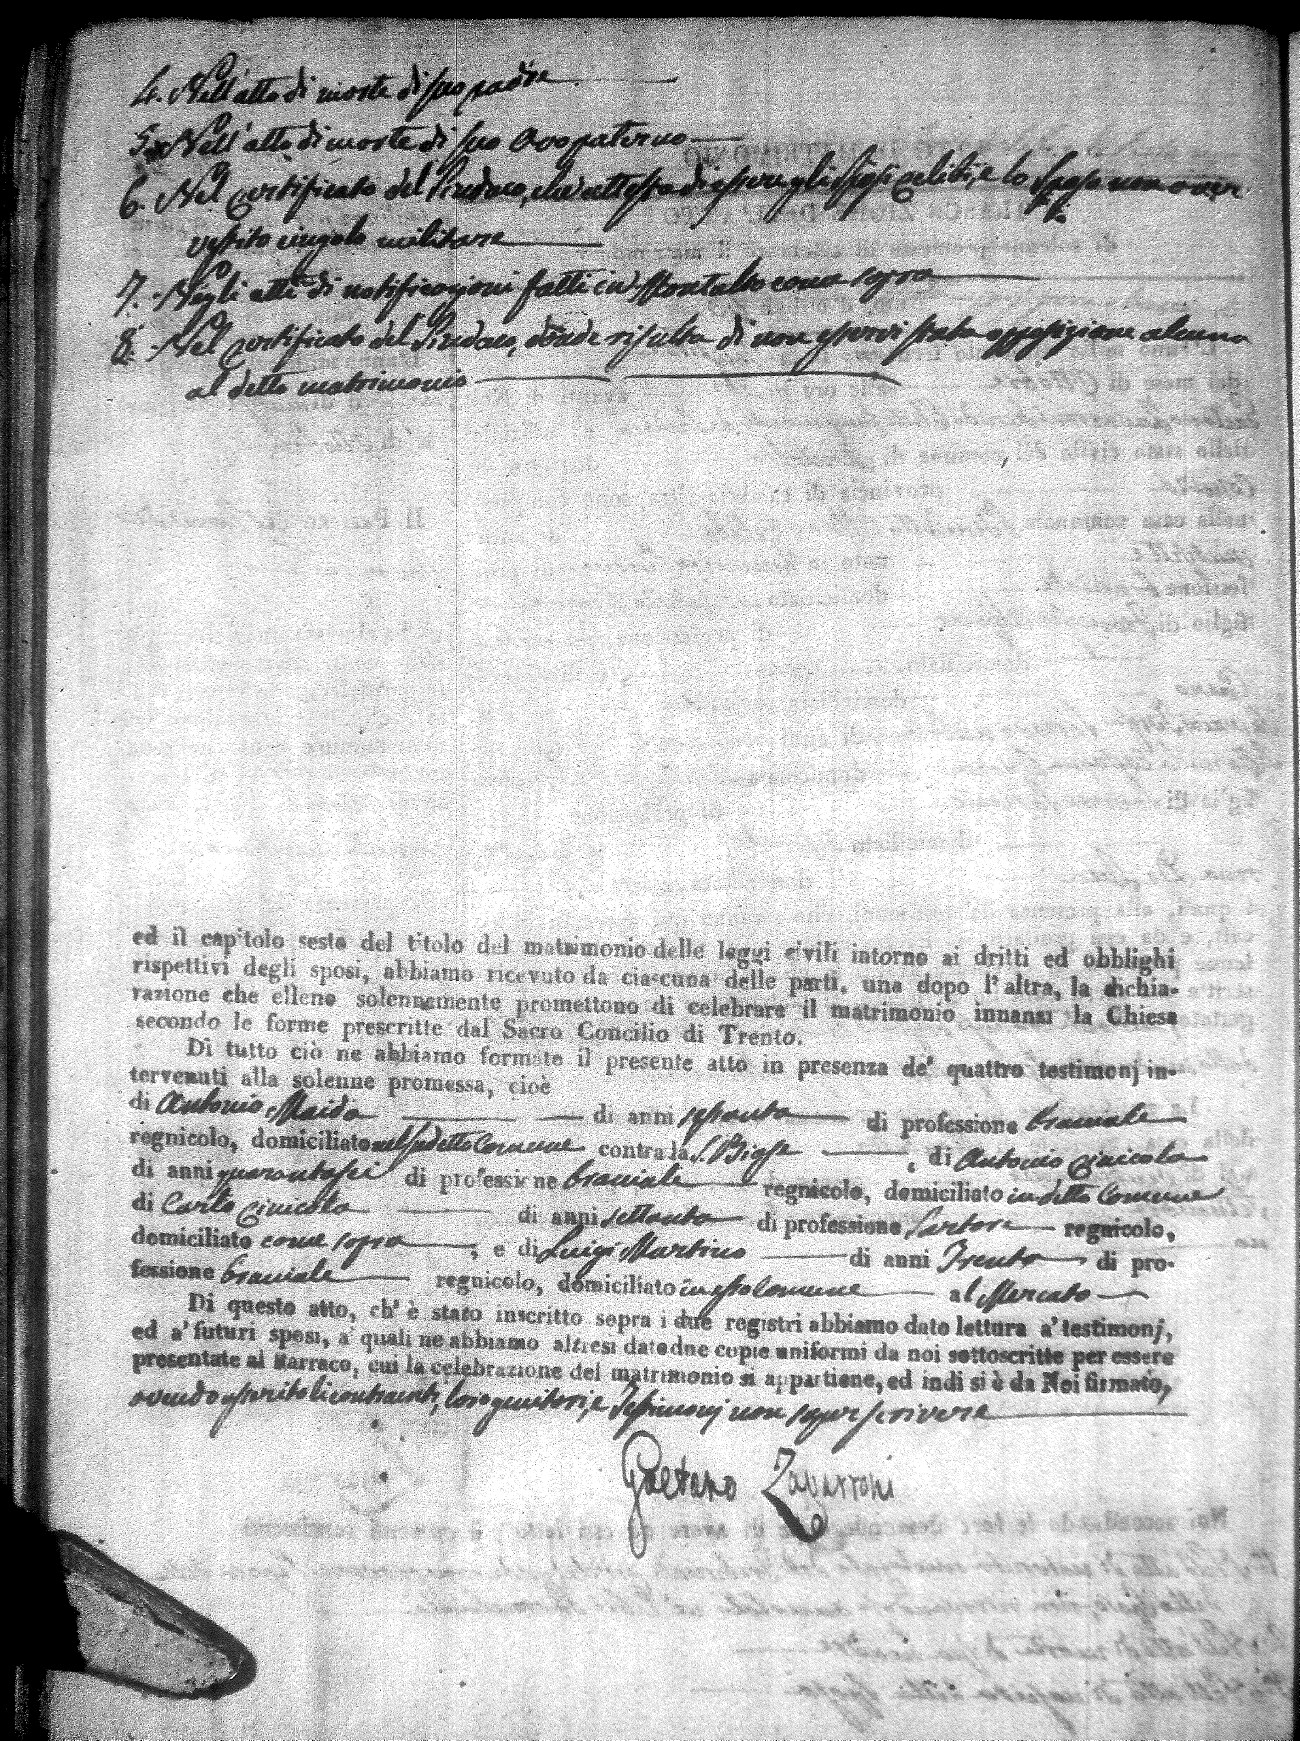 4. Nell'atto di morte di suo padre
5. Nell'atto di morte di suo Avo paterno
6. Nel certificato del Sindaco, che attesta di essere gli sposi celibi, e lo sposo non aver
vestito cingolo militare
7. Negli atti di notificazioni fatti in Montalto come sopra
8. Nel certificato del Sindaco, donde risulta di non esservi stata opposizione alcuna
al detto matrimonio
ed il capitolo sesto del titolo del matrimonio delle leggi civili intorno ai dritti ed obblighi
rispettivi degli sposi, abbiamo ricevuto da ciascuna delle parti, una dopo l'altra, la dichia-
razione che elleno solennemente promettono di celebrare il matrimonio innanzi la Chiesa
secondo le forme prescritte dal Sacro Concilio di Trento.
Di tutto ciò ne abbiamo formato il presente atto in presenza de' quattro testimonj in-
tervenuti alla solenne promessa, cioè
di Antonio Maida di anni settanta di professione bracciale
regnicolo, domiciliato nel sudetto Comune contrada S. Biase, di Antonio
di anni quarantasei di professione bracciale regnicolo, domiciliato in detto Comune
di Carlo di anni settanta di professione Sartore regnicolo,
domiciliato come sopra, e di Luigi Martino di anni Trenta di pro-
fessione bracciale regnicolo, domiciliato in esto Comune al Mercato
Di questo atto, ch'è stato inscritto sopra i due registri abbiamo dato lettura a' testimonj,
ed a' futuri sposi, a' quali ne abbiamo altresi dato due copie uniformi da noi sottoscritte per essere
presentate al Parroco, cui la celebrazione del matrimonio si appartiene, ed indi si è da Noi firmato,
avendo asserito li contraenti, loro genitori, e Testimonj non saper scrivere
Gaetano Zavarroni